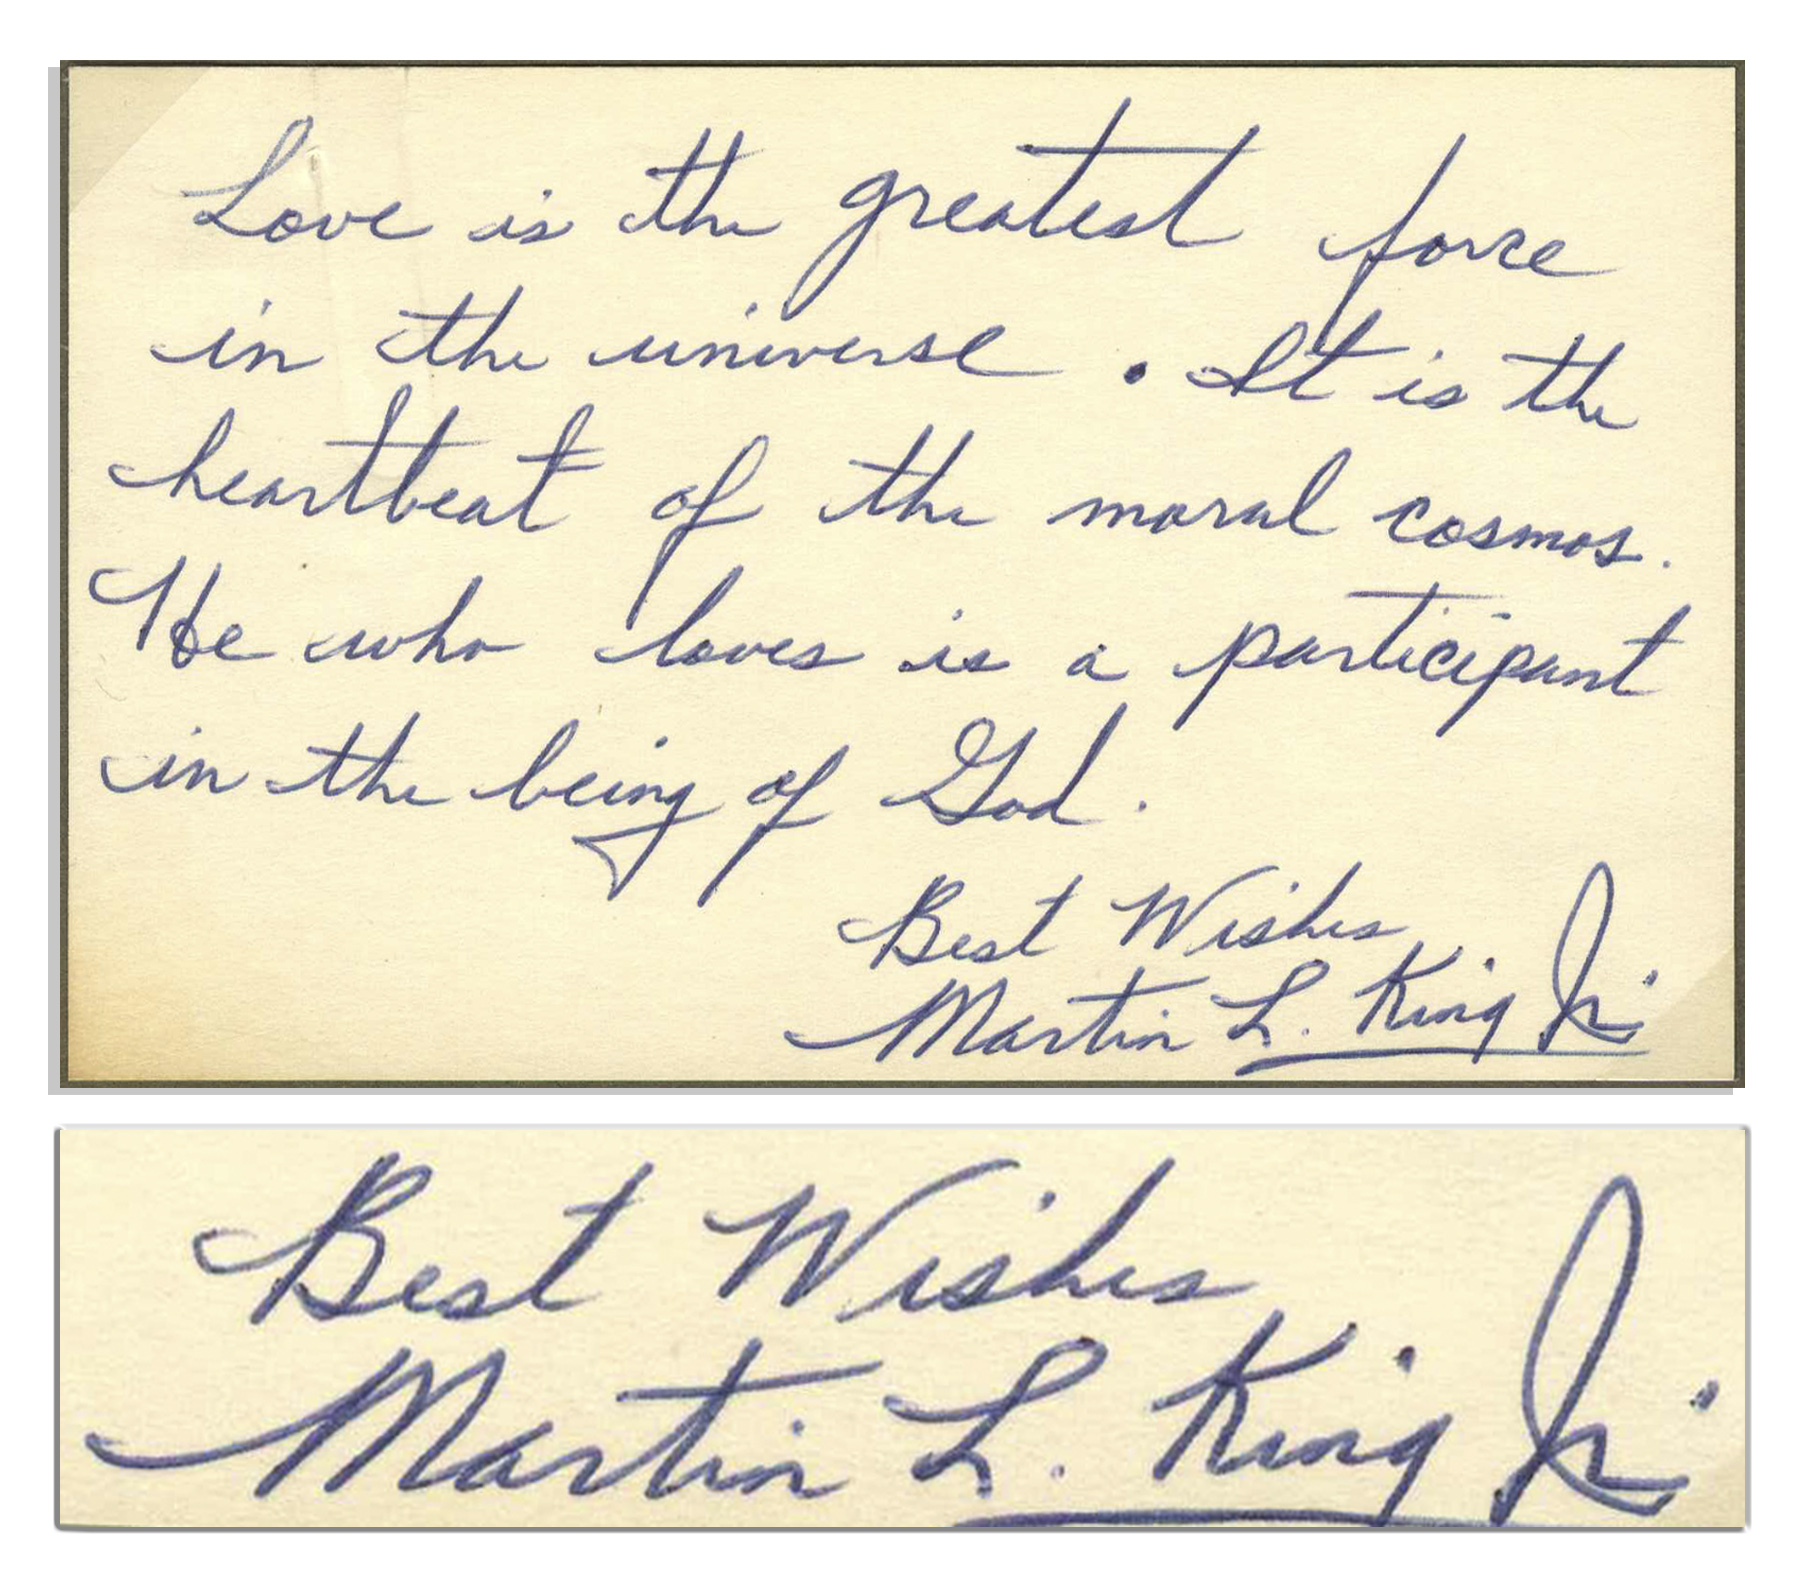 Love is the greatest force
in the universe. It is the
heartbeat of the moral cosmos.
He who loves is a participant
in the being of God.
Best Wishes
Martin L. King Jr.
Best Wishes
Martin L. King Jr.